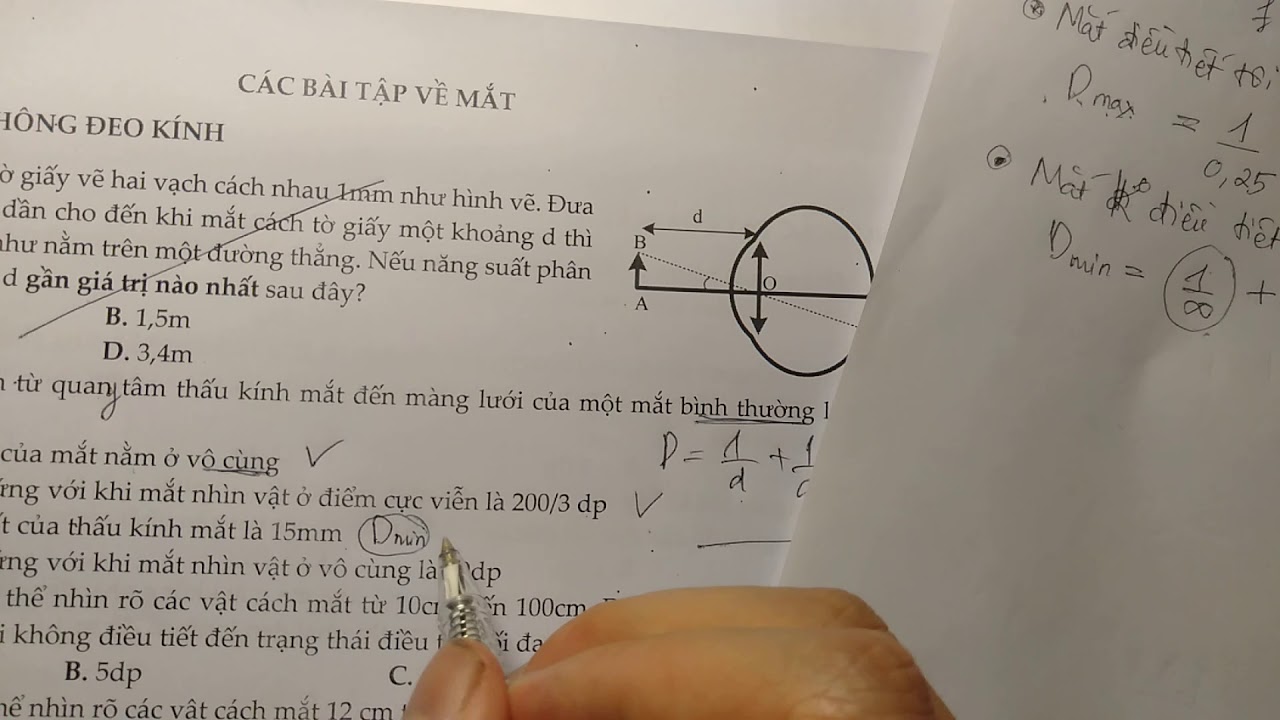 CÁC BÀI TẬP VỀ MẮT
HÔNG ĐEO KÍNH
ờ giấy vẽ hai vạch cách nhau 1mm như hình vẽ. Đưa
dần cho đến khi mắt cách tờ giấy một khoảng d thì
như nằm trên một đường thẳng. Nếu năng suất phân
d gần giá trị nào nhất sau đây?
B. 1,5m
D. 3,4m
d
B
A
O
từ quang tâm thấu kính mắt đến màng lưới của một mắt bình thường l
D = 1/d + 1
của mắt nằm ở vô cùng
ứng với khi mắt nhìn vật ở điểm cực viễn là 200/3 dp
t của thấu kính mắt là 15mm Dmin
ứng với khi mắt nhìn vật ở vô cùng là dp
thể nhìn rõ các vật cách mắt từ 10c ến 100cm
i không điều tiết đến trạng thái điều t ối đa
B. 5dp
C.
hể nhìn rõ các vật cách mắt 12 cm
Mắt điều tiết tối
Dmax = 1/0,25
Mắt ko điều tiết
Dmin = 1/∞ +